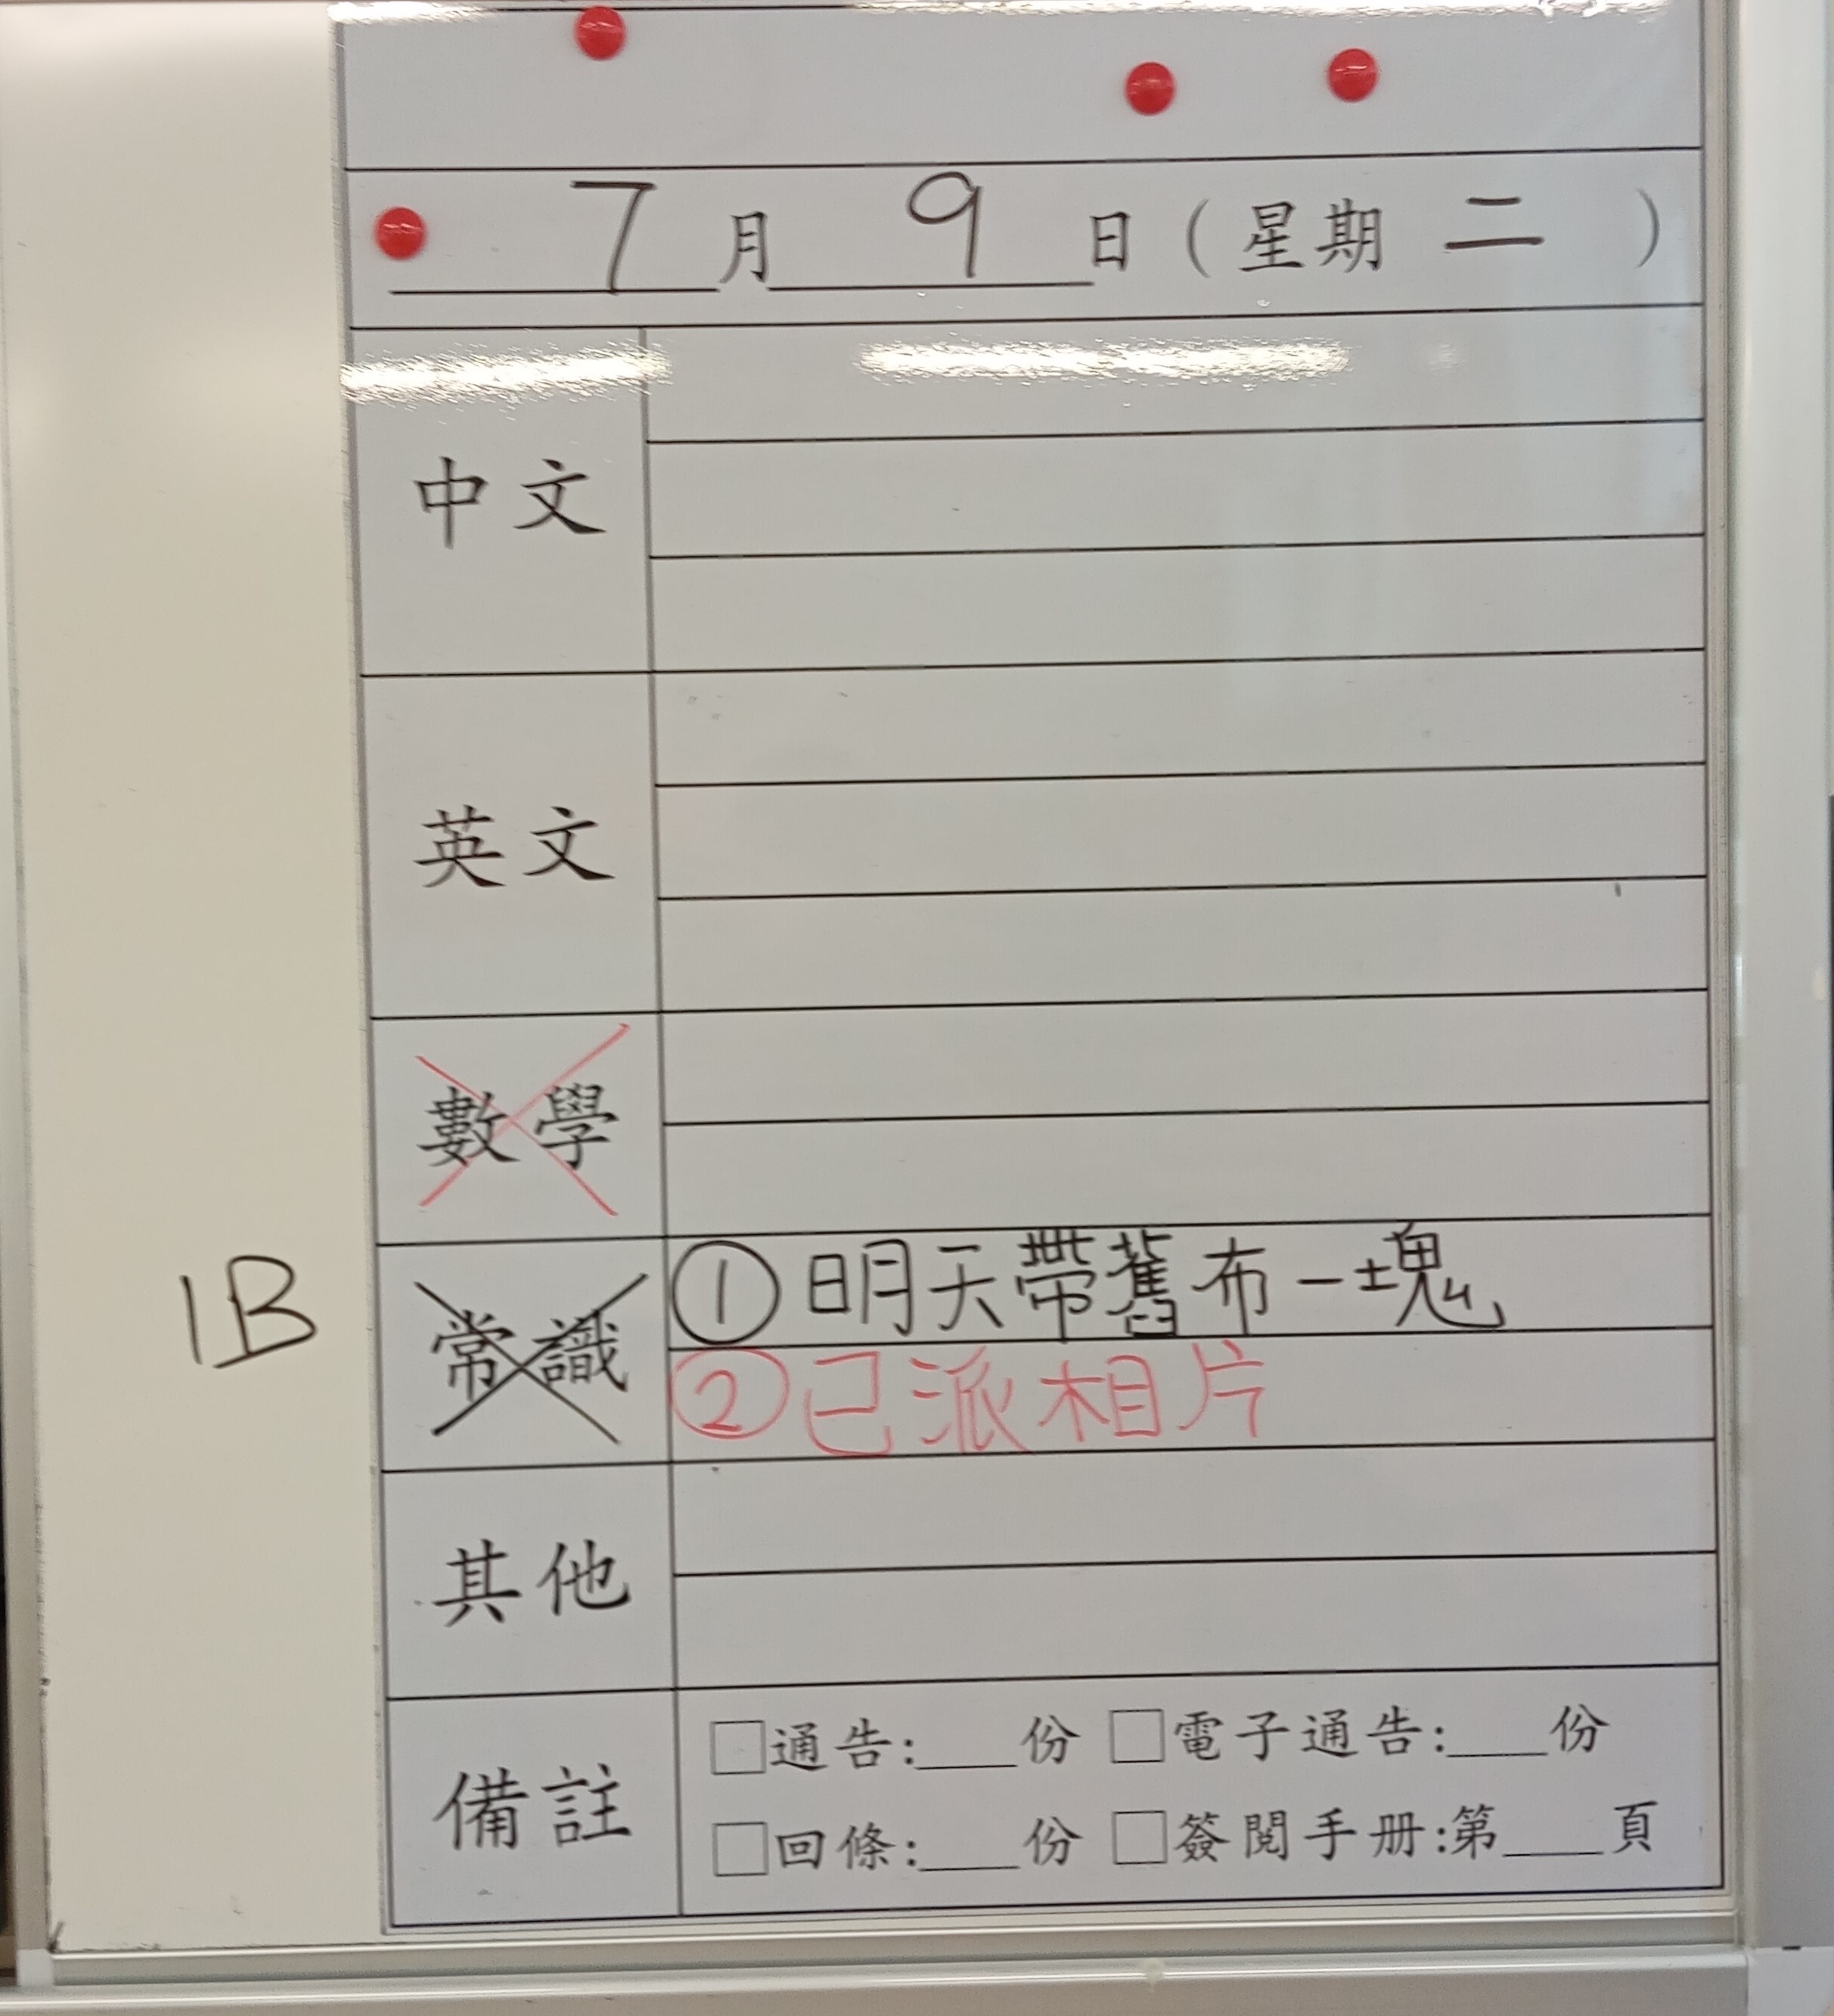 7月9日(星期二)
中文
英文
數學
1B
常識
①明天帶舊布一塊
②已派相片
其他
備註
□通告:___份 □電子通告:___份
□回條:___份 □簽閱手册:第___頁